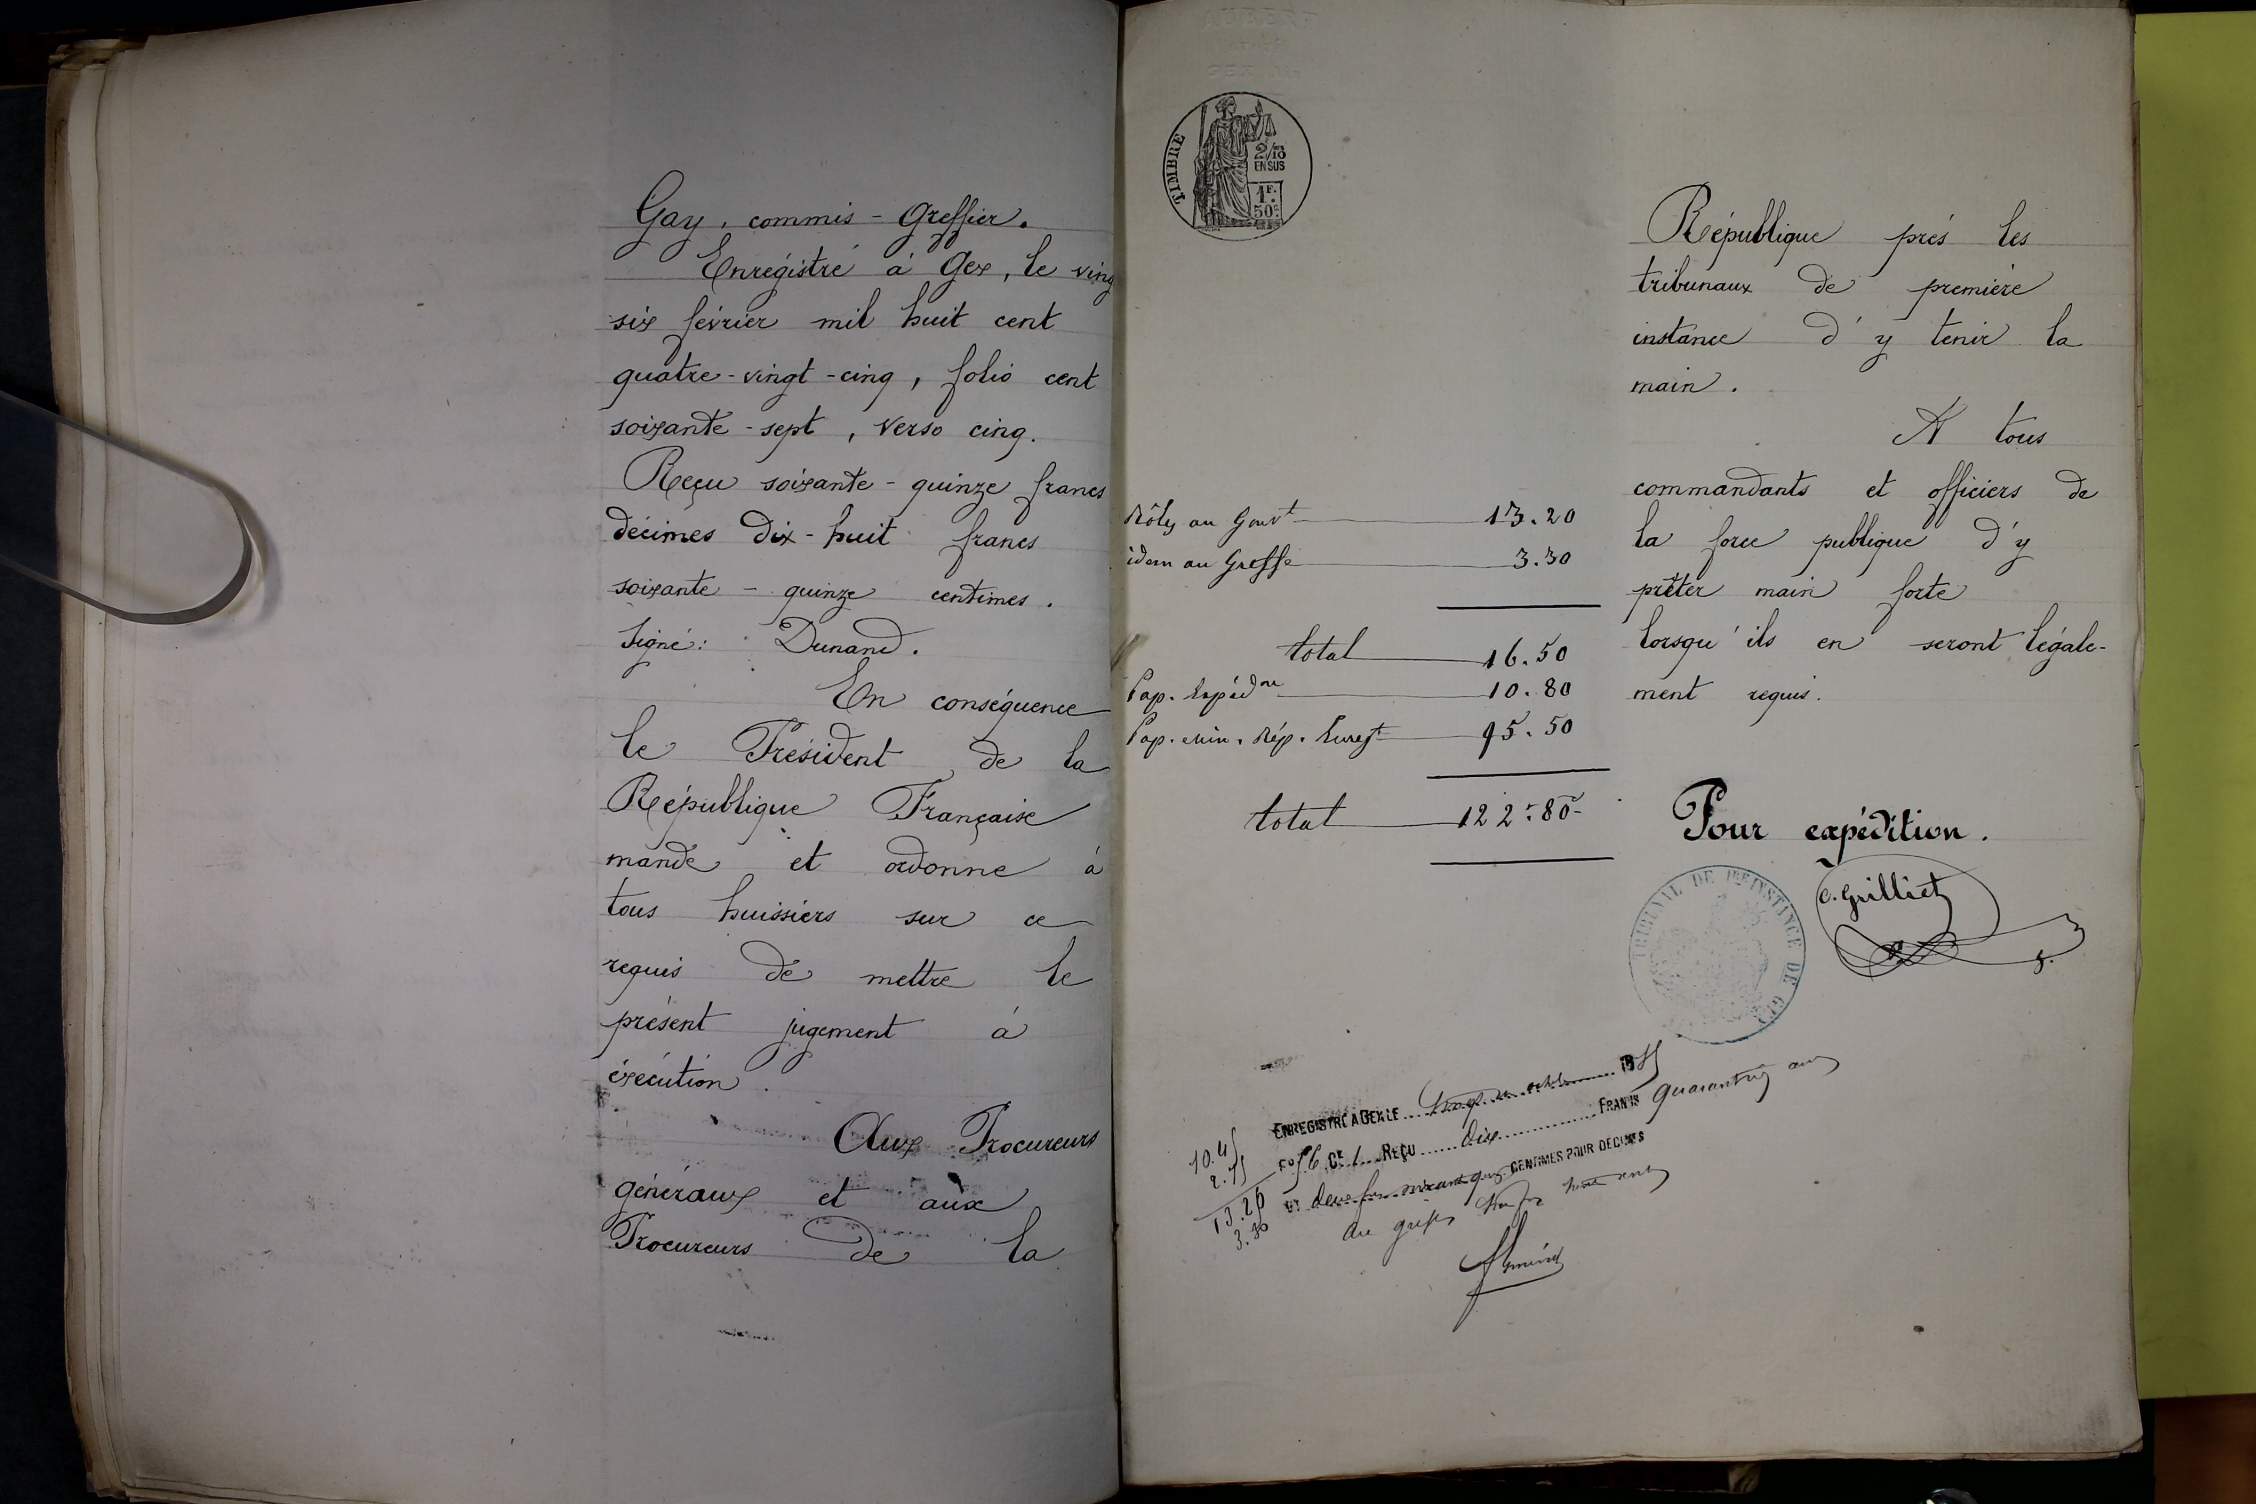 Gay, commis - Greffier.
Enregistré à Gex, le ving
six février mil huit cent
quatre-vingt-cinq, folio cent
soixante-sept, verso cinq.
Reçu soixante-quinze francs
décimes dix-huit francs
soixante-quinze centimes.
Signé: Dunand.
En conséquence
le Président de la
République Française
mande et ordonne à
tous huissiers sur ce
requis de mettre le
présent jugement à
éxécution.
Aux Procureurs
généraux et aux
Procureurs de la
TIMBRE
2/10
EN SUS
1F.
50c
Rôles au Gouvt 13.20
idem au Greffe 3.30
total 16.50
Pap. Expédon 10.80
Pap. min. Rép. Euregt 95.50
total 122.80
République prés les
tribunaux de première
instance d'y tenir la
main.
A tous
commandants et officiers de
la force publique d'y
prêter main forte
lorsqu'ils en seront légale-
ment requis.
Pour expédition.
C. Grilliet
TRIBUNAL DE 1RE INSTANCE DE GEX
ENREGISTRÉ A GEX LE 18
Fo 56 Ce 1 REÇU dix FRANCS
ET deux CENTIMES POUR DECIMES
au greffe
10.45
2.75
13.20
3.30